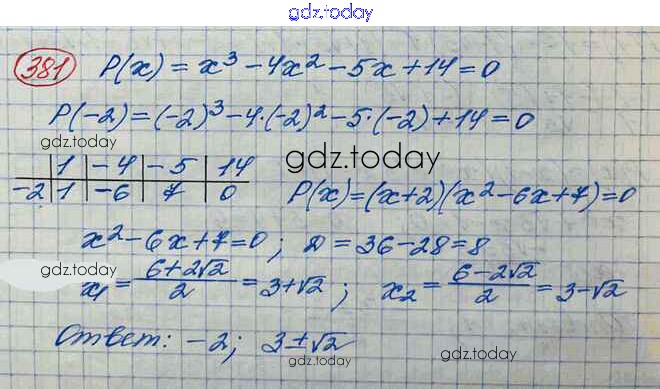 gdz.today
381 P(x) = x³ - 4x² - 5x + 14 = 0
P(-2) = (-2)³ - 4·(-2)² - 5·(-2) + 14 = 0
gdz.today
gdz.today
1 | -4 | -5 | 14
-2 | 1 | -6 | 7 | 0
P(x) = (x+2)(x² - 6x + 7) = 0
x² - 6x + 7 = 0; D = 36 - 28 = 8
gdz.today
x₁ = (6+2√2)/2 = 3+√2; x₂ = (6-2√2)/2 = 3-√2
Ответ: -2; 3±√2
gdz.today
gdz.today